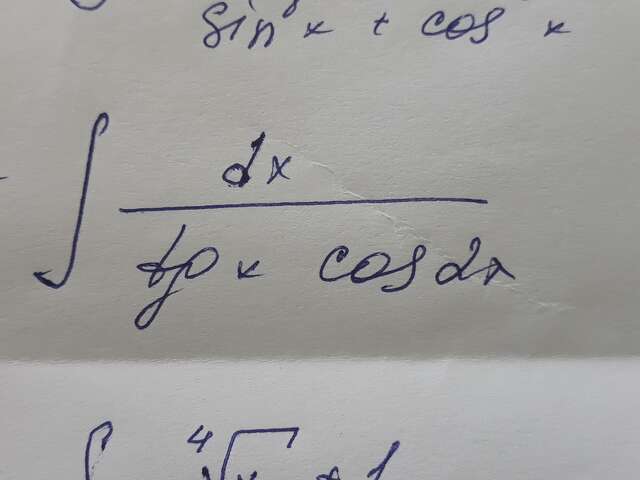 sin⁸ x + cos x
∫ dx / tg x cos 2x
∫ ⁴√x + 1